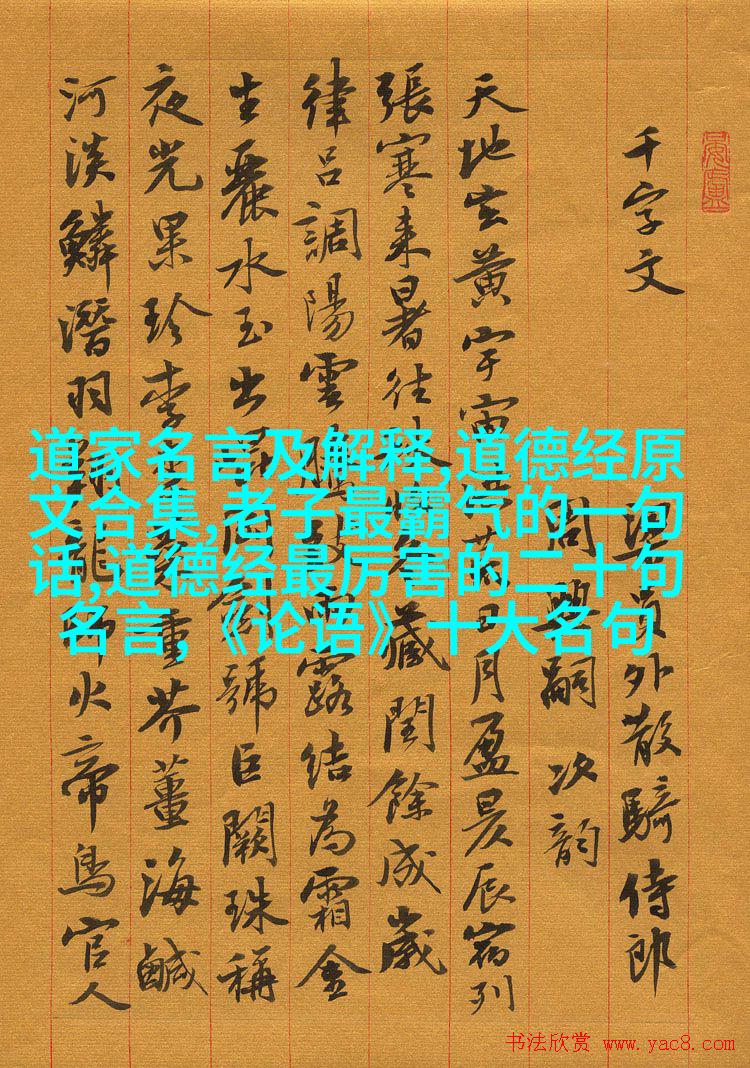 千字文 梁員外散騎侍郎
周興嗣次韵
天地玄黄宇宙洪荒日月盈昃辰宿列
張寒来暑往秋收冬藏閏餘成歲
律吕調陽雲騰致雨露結為霜金
生麗水玉出崑岡劍號巨闕珠稱
夜光果珍李柰菜重芥薑海鹹
河淡鱗潛羽翔龍師火帝鳥官人
道家名言及解释,道德经原
文合集,老子最霸气的一句
话,道德经最厉害的二十句
名言,《论语》十大名句
书法欣赏 www.yac8.com